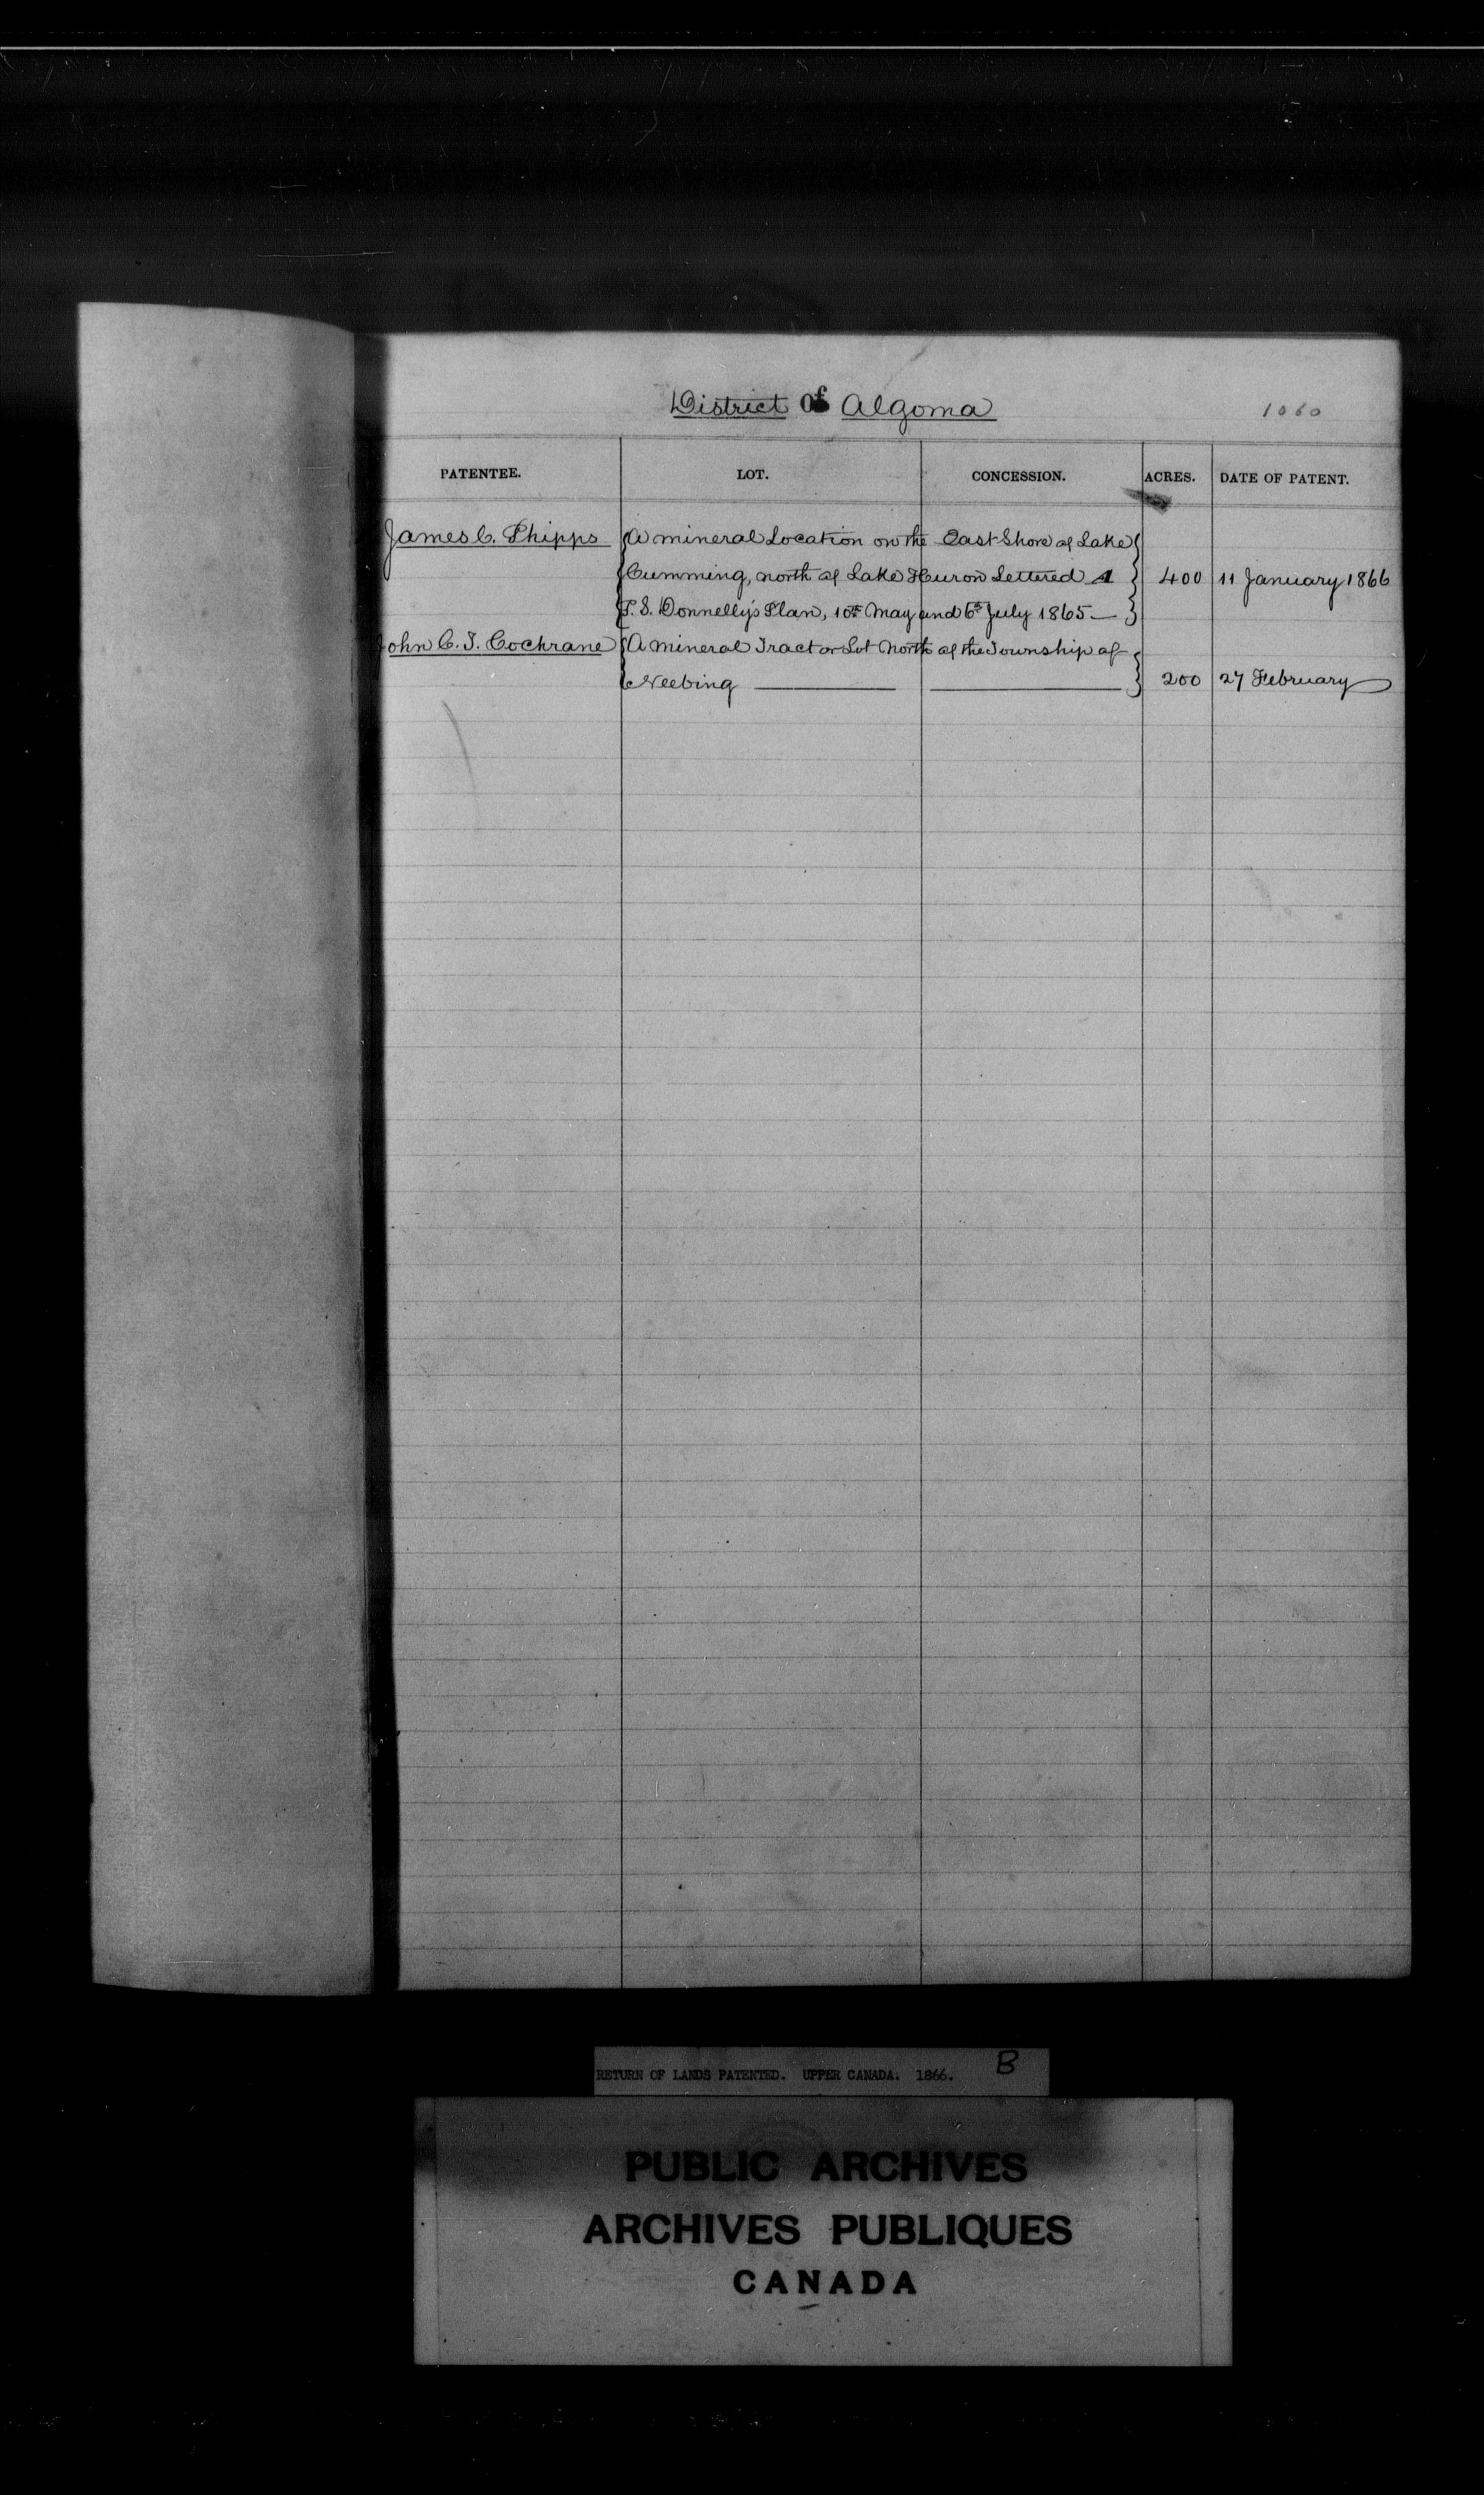 District of Algoma
1060
PATENTEE. LOT. CONCESSION. ACRES. DATE OF PATENT.
James C. Phipps A mineral Location on the East Shore of Lake
Cumming, north of Lake Huron Lettered A 400 11 January 1866
T. S. Donnelly's Plan, 10th May and 6th July 1865 —
John C. T. Cochrane A mineral Tract or Lot North of the Township of
Neebing 200 27 February
RETURN OF LANDS PATENTED. UPPER CANADA. 1866. B
PUBLIC ARCHIVES
ARCHIVES PUBLIQUES
CANADA